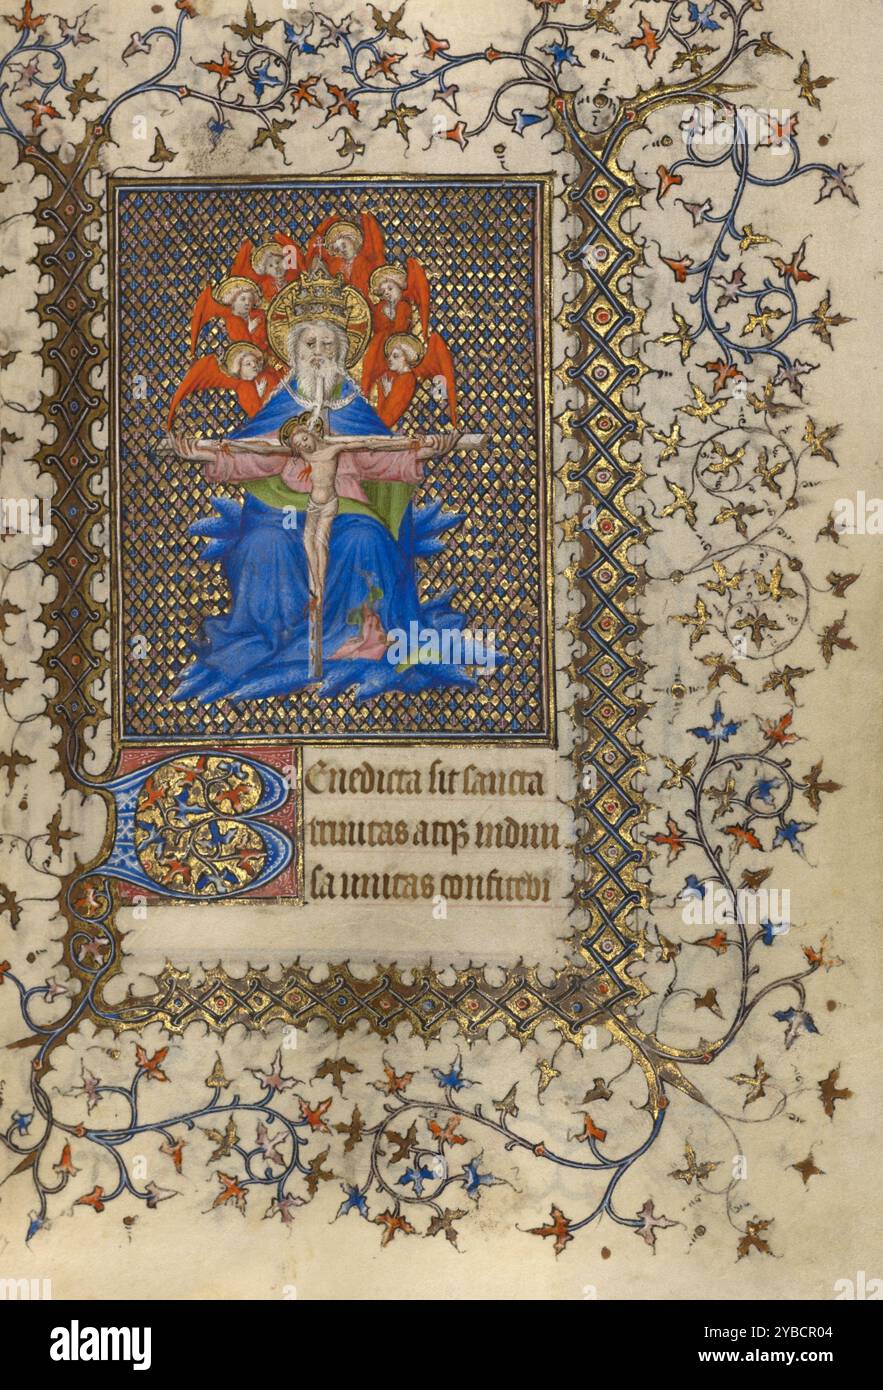 Benedicta sit sancta
trinitas atqꝫ indiui
sa unitas confitebi
alamy
Image ID: 2YBCR04
www.alamy.com